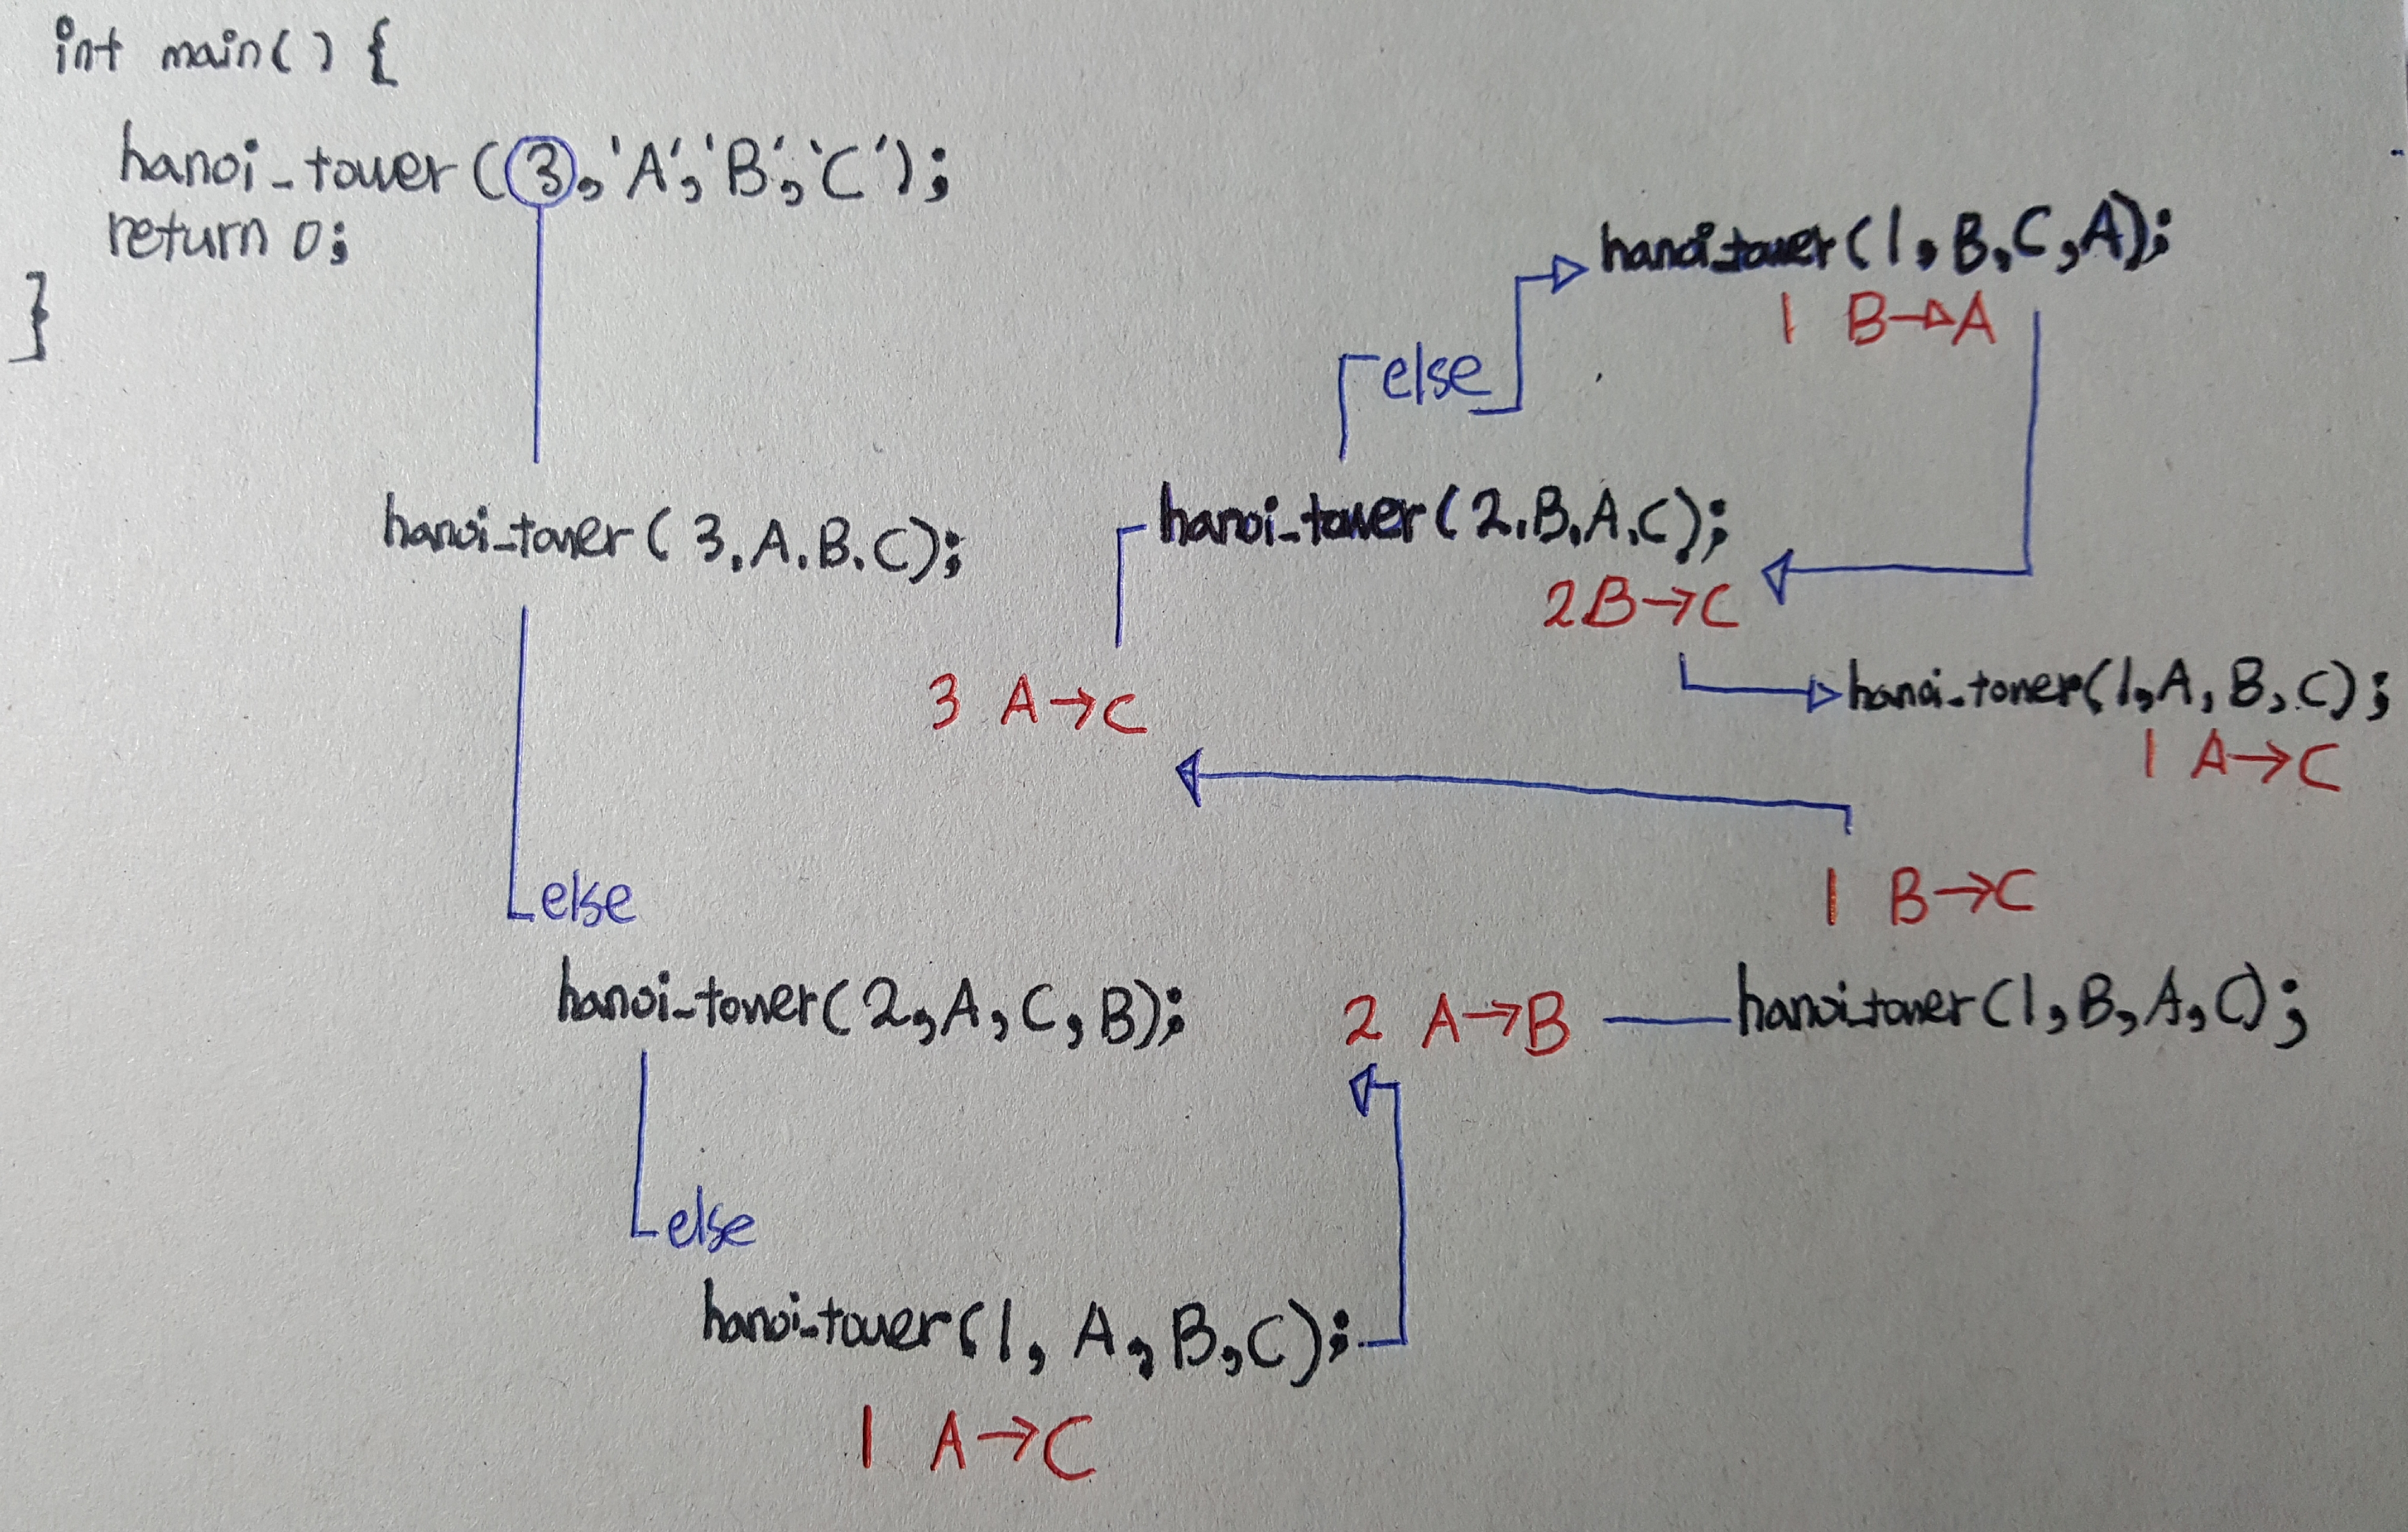 int main() {
hanoi_tower(3,'A','B','C');
return 0;
}
hanoi_tower(1,B,C,A);
1 B→A
else
hanoi_tower(3.A.B.C);
hanoi_tower(2.B.A.C);
2B→C
3 A→C
hanoi_tower(1,A,B,C);
1 A→C
else
1 B→C
hanoi_tower(2,A,C,B);
2 A→B
hanoi_tower(1,B,A,C);
else
hanoi_tower(1,A,B,C);
1 A→C